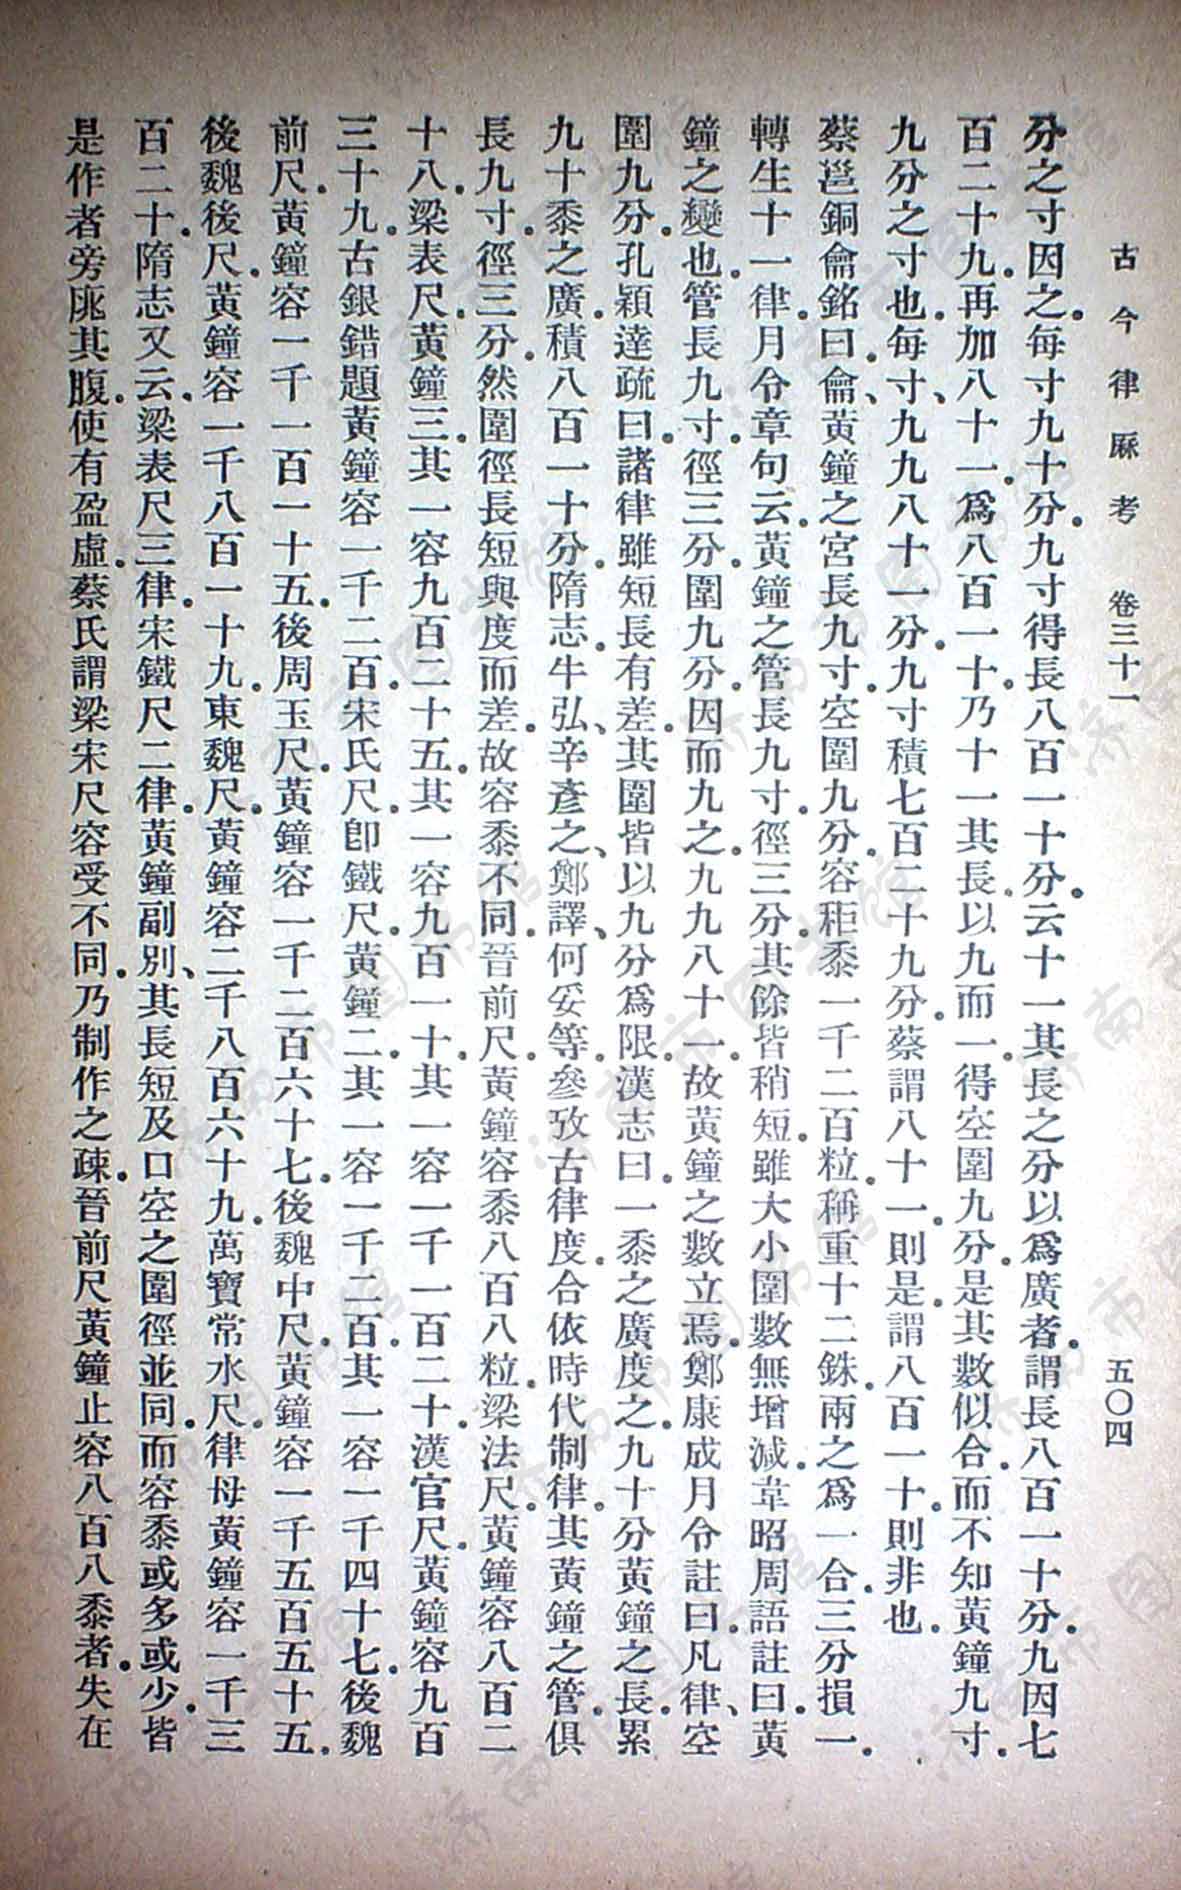 古今律厤考　卷三十一　五〇四
分之寸因之。每寸九十分。九寸得長八百一十分。云十一其長之分以爲廣者。謂長八百一十分。九因七
百二十九。再加八十一。爲八百一十。乃十一其長。以九而一。得空圍九分。是其數似合。而不知黃鐘九寸。
九分之寸也。每寸九九八十一分。九寸積七百二十九分。蔡謂八十一則是。謂八百一十。則非也。
蔡邕銅龠銘曰。龠、黃鐘之宮長九寸。空圍九分。容秬黍一千二百粒。稱重十二銖。兩之爲一合。三分損一。
轉生十一律。月令章句云。黃鐘之管長九寸。徑三分。其餘皆稍短。雖大小圍數無增減。韋昭周語註曰。黃
鐘之變也。管長九寸。徑三分。圍九分。因而九之。九九八十一。故黃鐘之數立焉。鄭康成月令註曰。凡律、空
圍九分。孔穎達疏曰。諸律雖短長有差。其圍皆以九分爲限。漢志曰。一黍之廣度之。九十分黃鐘之長。累
九十黍之廣。積八百一十分。隋志。牛弘、辛彥之、鄭譯、何妥等。參攷古律度。合依時代制律。其黃鐘之管。俱
長九寸。徑三分。然圍徑長短與度而差。故容黍不同。晉前尺。黃鐘容黍八百八粒。梁法尺。黃鐘容八百二
十八。梁表尺。黃鐘三。其一容九百二十五。其一容九百一十。其一容一千一百二十。漢官尺。黃鐘容九百
三十九。古銀錯題黃鐘容一千二百。宋氏尺。卽鐵尺。黃鐘二。其一容一千二百。其一容一千四十七。後魏
前尺。黃鐘容一千一百一十五。後周玉尺。黃鐘容一千二百六十七。後魏中尺。黃鐘容一千五百五十五。
後魏後尺。黃鐘容一千八百一十九。東魏尺。黃鐘容二千八百六十九。萬寶常水尺。律母黃鐘容一千三
百二十。隋志又云。梁表尺三律。宋鐵尺二律。黃鐘副別、其長短及口空之圍徑並同。而容黍或多或少。皆
是作者旁庣其腹。使有盈虛。蔡氏謂梁宋尺容受不同。乃制作之疎。晉前尺黃鐘止容八百八黍者。失在